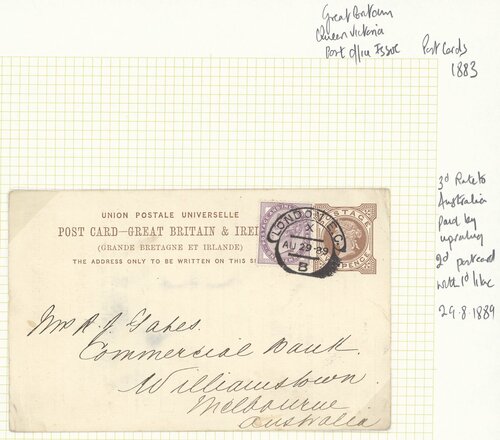 Great Britain
Queen Victoria
Post Office Issue
Post Cards
1883
3d Rate to
Australia
paid by
uprating
2d postcard
with 1d lilac
29.8.1889
UNION POSTALE UNIVERSELLE
POST CARD—GREAT BRITAIN & IRE
(GRANDE BRETAGNE ET IRLANDE)
THE ADDRESS ONLY TO BE WRITTEN ON THIS SI
POSTAGE
PENCE
LONDON.E.C.
X
AU 29 89
B
Mrs R. J. Gates.
Commercial Bank.
Williamstown
Melbourne
Australia